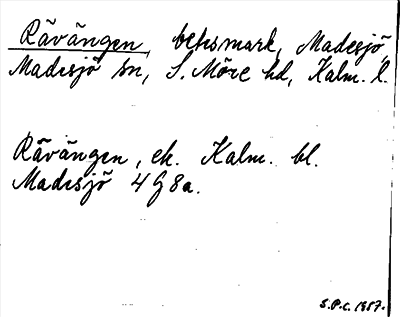 Rävängen, betesmark, Madesjö,
Madesjö sn, S. Möre hd, Kalm. l.
Rävängen, ek. Kalm. bl.
Madesjö 4G8a.
S.P.C. 1957.